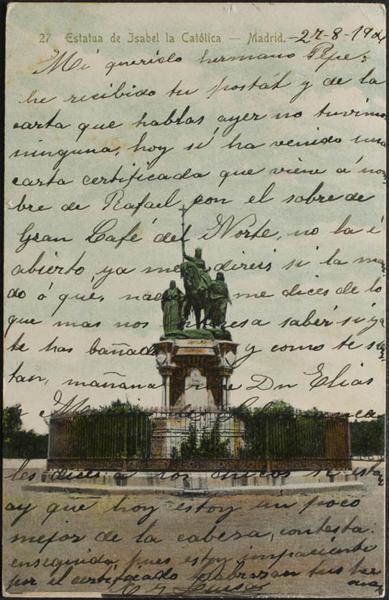 27 Estatua de Isabel la Católica — Madrid. - 27-8-19
Mi querido hermano Pepe:
he recibido tu postál y de la
carta que hablas ayer no tuvimos
ninguna, hoy si ha venido una
carta certificada que viene á nom
bre de Rafael, con el sobre de
Gran Café del Norte, no la e
abierto, ya me direis si la man
do ó que, nada me dices de lo
que mas nos saber si ya
te has bañado y como te sien
tan, mañana Dn Elias
é
les dices á
ay que hoy estoy un poco
mejor de la cabeza, contesta
enseguida pues estoy impaciente
por el certificado